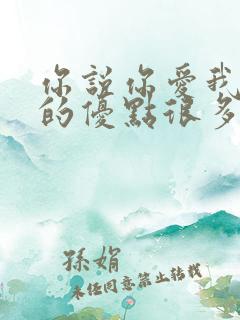 你說你愛我
的優點很多
孫娟
未經同意禁止轉載